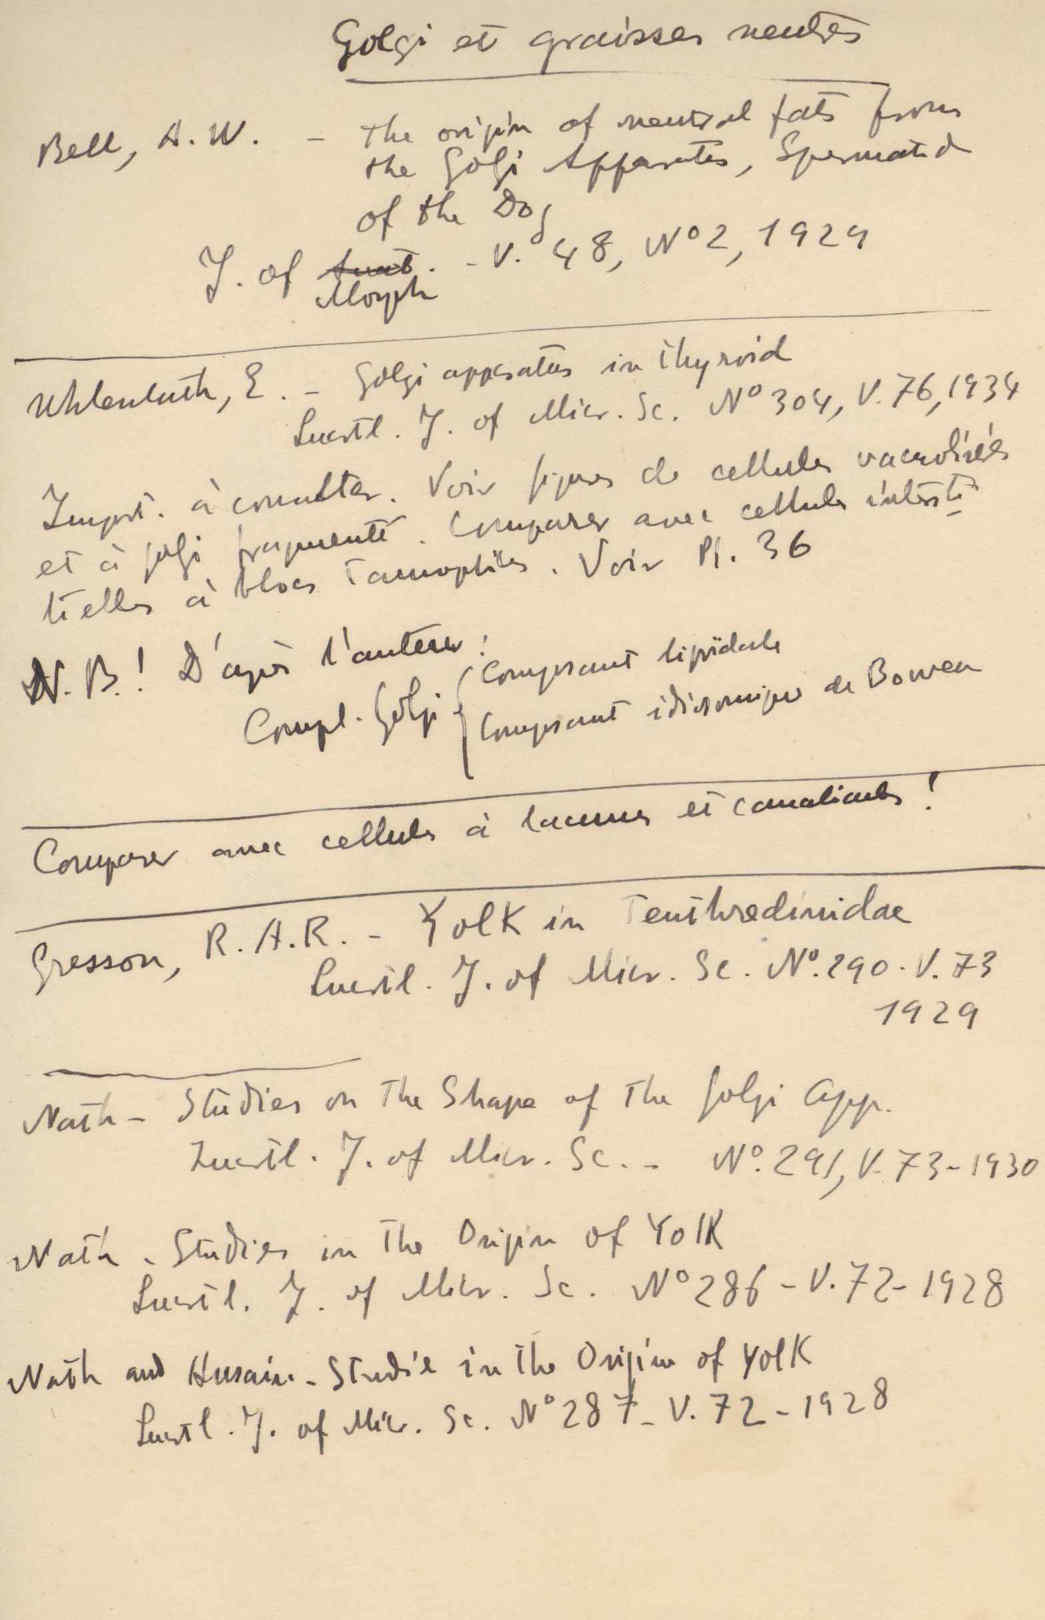 Golgi et graisses neutres
Bell, A. W. – The origin of neutral fats from
the Golgi Apparatus, Spermatid
of the Dog
J. of Anat. - V. 48, Nº 2, 1929
Morph
Uhlenhuth, E. – Golgi apparatus in thyroid
Quartl. J. of Micr. Sc. Nº 304, V. 76, 1934
Import. à consulter. Voir figures de cellules vacuolisées
et à golgi fragmenté. Comparer avec cellules intersti-
tielles à blocs osmophiles. Voir Pl. 36
N. B.! D'après l'auteur:
Compl. Golgi { Composant lipidale
Composant idiosomique de Bowen
Comparer avec cellules à lacunes et canalicules!
Gresson, R. A. R. – Yolk in Tenthredinidae
Quartl. J. of Micr. Sc. Nº. 290. V. 73
1929
Nath – Studies on The Shape of The Golgi App.
Quartl. J. of Micr. Sc. – Nº. 291, V. 73 - 1930
Nath – Studies in The Origin of Yolk
Quartl. J. of Micr. Sc. Nº 286 – V. 72 - 1928
Nath and Husain – Studie in The Origin of Yolk
Quartl. J. of Micr. Sc. Nº 287 – V. 72 - 1928